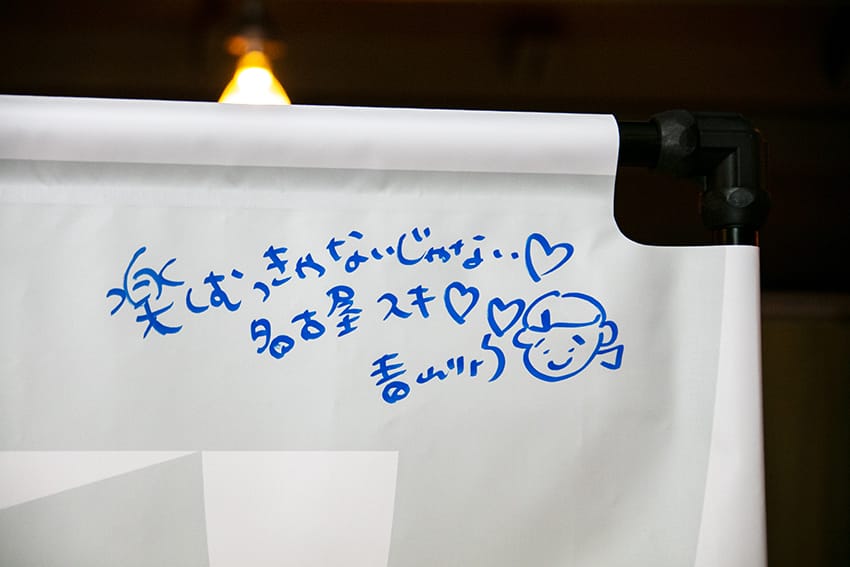 楽しむっきゃないじゃない♡
名古屋 スキ♡♡
青山りょう